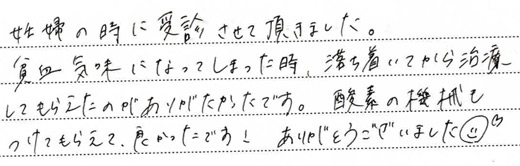 妊婦の時に受診させて頂きました。
貧血気味になってしまった時、落ち着いてから治療
してもらえたのがありがたかったです。酸素の機械も
つけてもらえて、良かったです! ありがとうございました